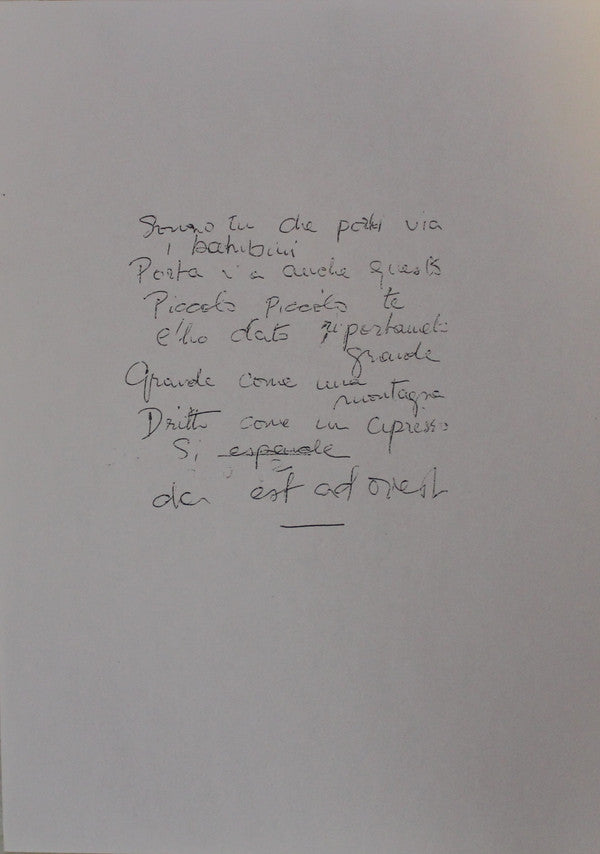 Sonno tu che porti via
i bambini
Porta via anche questo
Piccolo piccolo te
l'ho dato riportamelo
grande
Grande come una
montagna
Dritto come un cipresso
Si espande
da est ad ovest